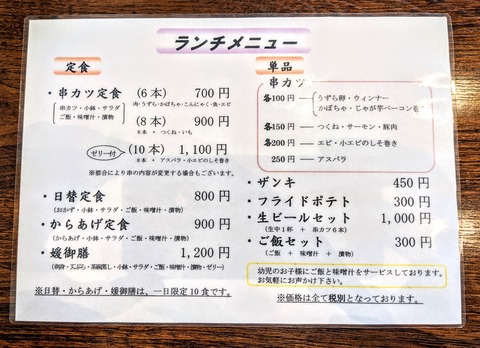 ランチメニュー
定食
・串カツ定食 (6本) 700円
串カツ・小鉢・サラダ
ご飯・味噌汁・漬物
肉・うずら・かぼちゃ・こんにゃく・魚・エビ
(8本) 900円
6本 + つくね・いも
ゼリー付 (10本) 1,100円
8本 + アスパラ・小エビのしそ巻き
※都合により串の内容が変更する場合もございます。
・日替定食 800円
(おかず・小鉢・サラダ・ご飯・味噌汁・漬物)
・からあげ定食 900円
(からあげ・小鉢・サラダ・ご飯・味噌汁・漬物)
・媛御膳 1,200円
(刺身・天ぷら・茶碗蒸し・小鉢・サラダ・ご飯・味噌汁・漬物・ゼリー)
※日替・からあげ・媛御膳は、一日限定10食です。
単品
串カツ
各100円 うずら卵・ウィンナー
かぼちゃ・じゃが芋ベーコン
各150円 つくね・サーモン・豚肉
各200円 エビ・小エビのしそ巻き
250円 アスパラ
・ザンキ 450円
・フライドポテト 300円
・生ビールセット 1,000円
(生中1杯 + 串カツ6本)
・ご飯セット 300円
(ご飯 + 味噌汁 + 漬物)
幼児のお子様にご飯と味噌汁をサービスしております。
お気軽にお声かけ下さい。
※価格は全て税別となっております。